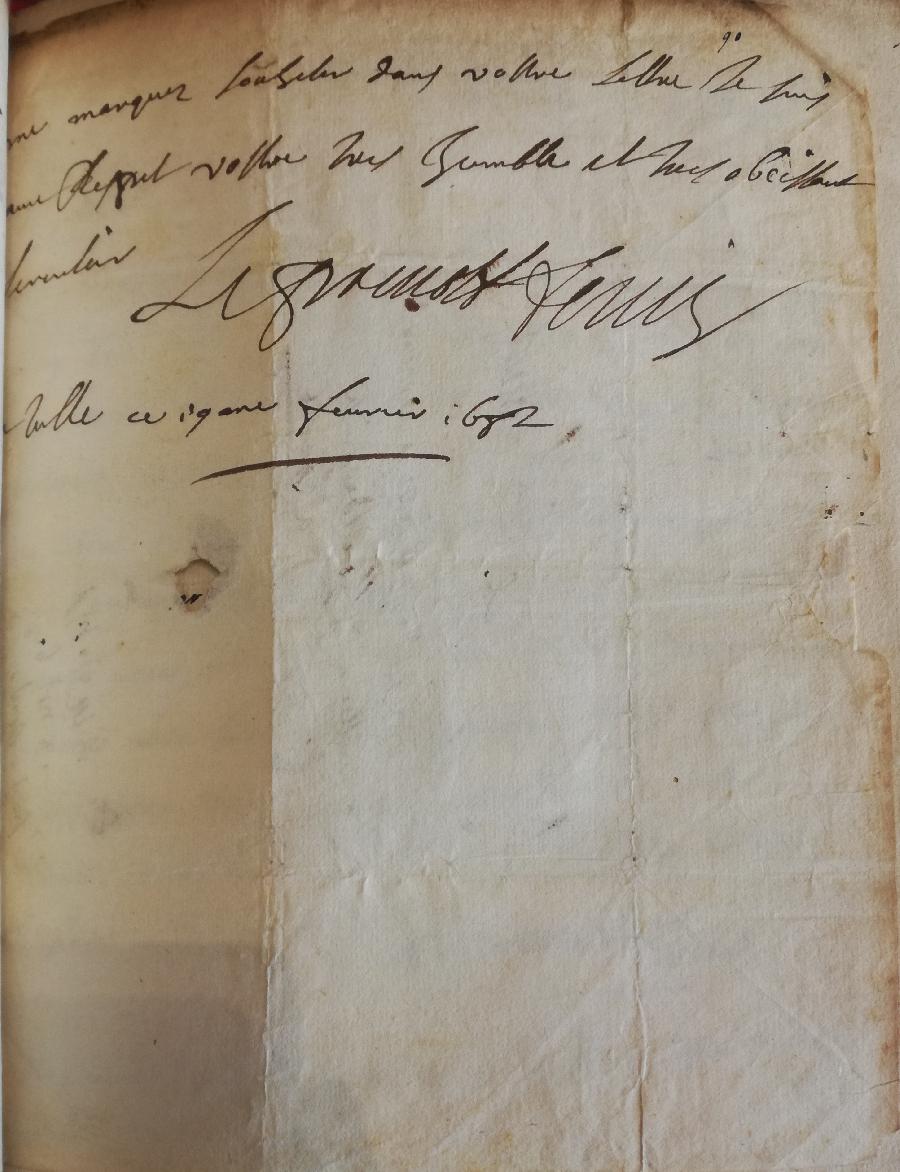 90
me marquez souhaiter dans vostre lettre Je suis
avec respect vostre tres humble et tres obeissant
serviteur Le prevost
Tulle ce 19ame feurier 1682